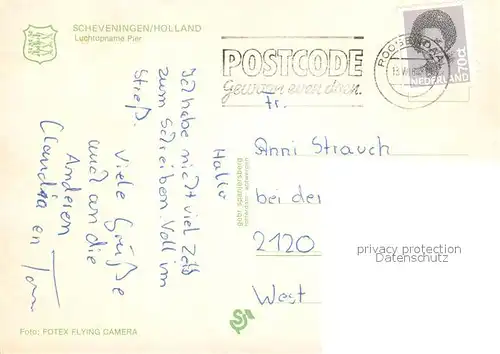 SCHEVENINGEN/HOLLAND
Luchtopname Pier
POSTCODE
Gewoon even doen.
ROOSENDAAL
NEDERLAND
70ct
Hallo
Ich habe nicht viel Zeit
zum Schreiben. Voll im
Streß.
Viele Grüße
und an die
Anderen
Claudia en Tom
Fr.
Anni Strauch
bei der
2120
West
gebr. spanjersberg
privacy protection
Datenschutz
Foto: FOTEX FLYING CAMERA